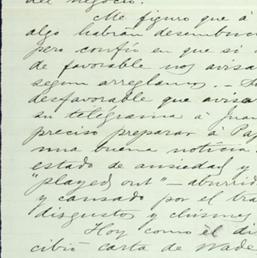 del negocio.
Me figuro que á
algo habrán desembuc
pero confío en que si
de favorable nos avisa
segun arreglamos
desfavorable que avisa
su telegrama á Juan
preciso preparar á Pap
una buena noticia
estado de ansiedad y
"played out" — aburrid
y cansado por el tra
disgustos y chismes
Hoy como el di
cibió carta de Wade